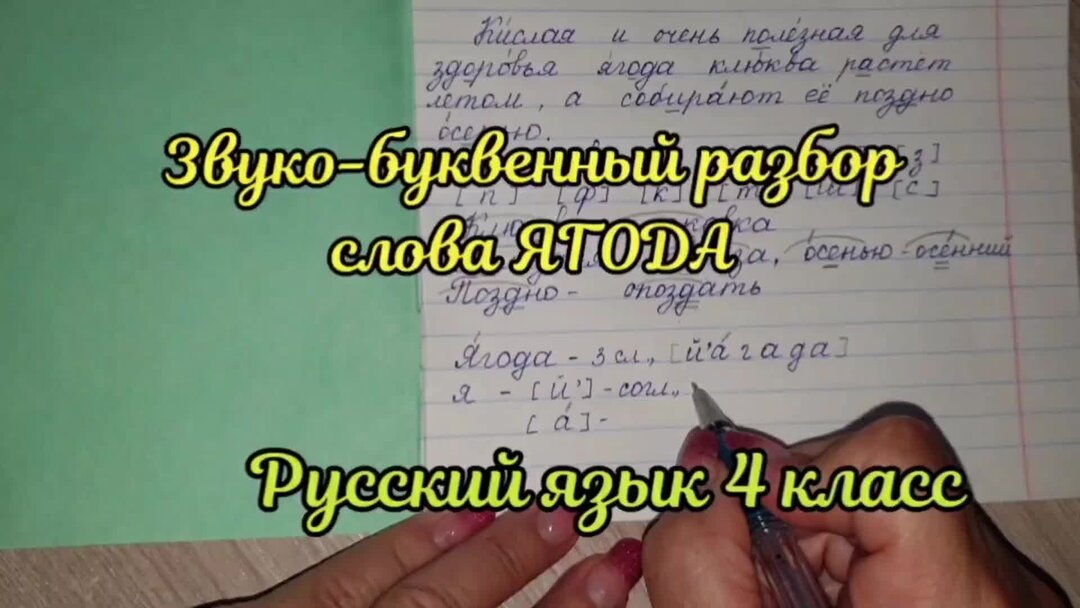 Кислая и очень полезная для
здоровья ягода клюква растёт
летом, а собирают её поздно
осенью.
Звуко-буквенный разбор
з]
[п] [ф] [к] [с]
слова ЯГОДА
осенью - осенний
Поздно - опоздать
Ягода - 3 сл., [й'а́гада]
я - [й'] - согл.,
[а́] -
Русский язык 4 класс